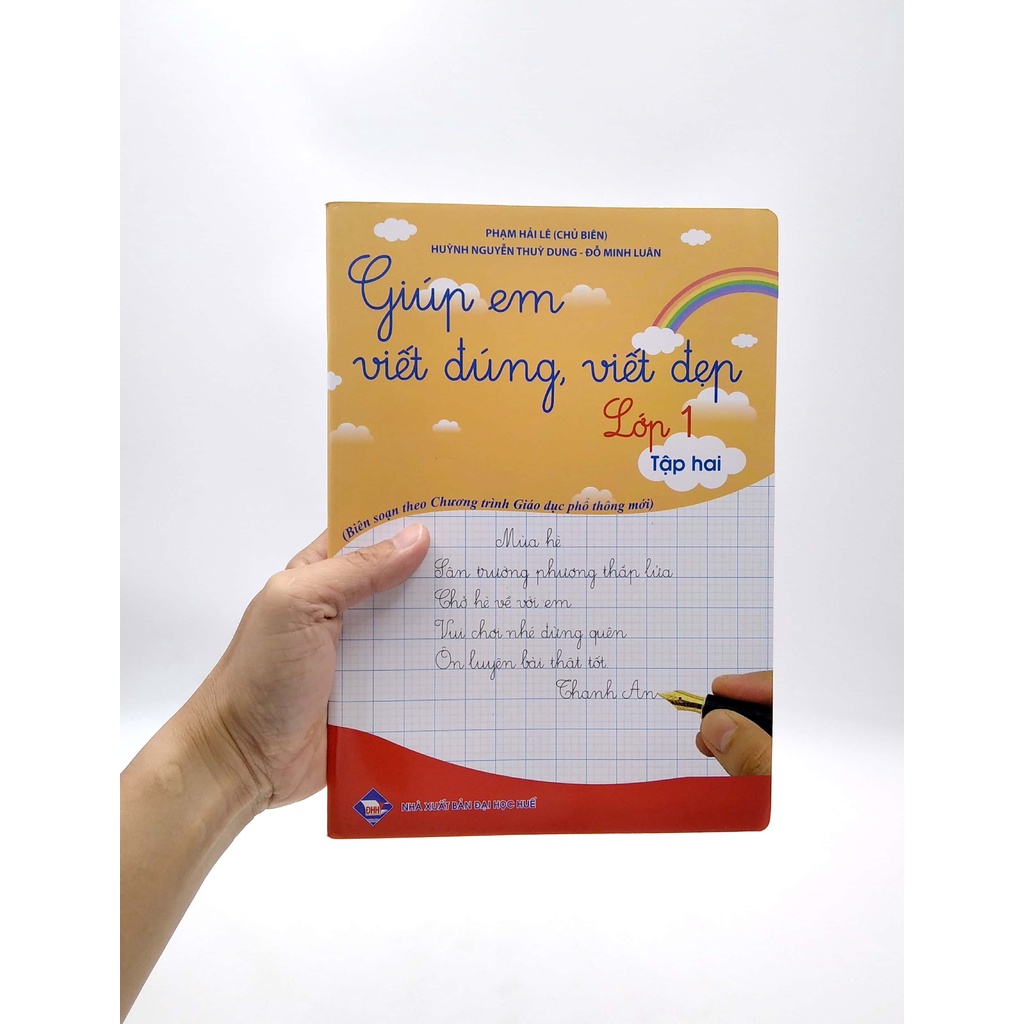 PHẠM HẢI LÊ (CHỦ BIÊN)
HUỲNH NGUYỄN THUỲ DUNG - ĐỖ MINH LUÂN
Giúp em
viết đúng, viết đẹp
Lớp 1
Tập hai
(Biên soạn theo Chương trình Giáo dục phổ thông mới)
Mùa hè
Sân trường phượng thắp lửa
Chở hè về với em
Vui chơi nhé đừng quên
Ôn luyện bài thật tốt.
Thanh An
ĐHH
NHÀ XUẤT BẢN ĐẠI HỌC HUẾ